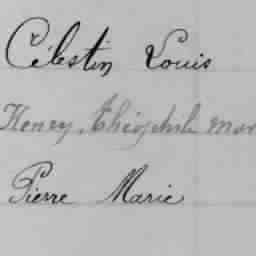 Célestin Louis
Henry Théophile Mar
Pierre Marie